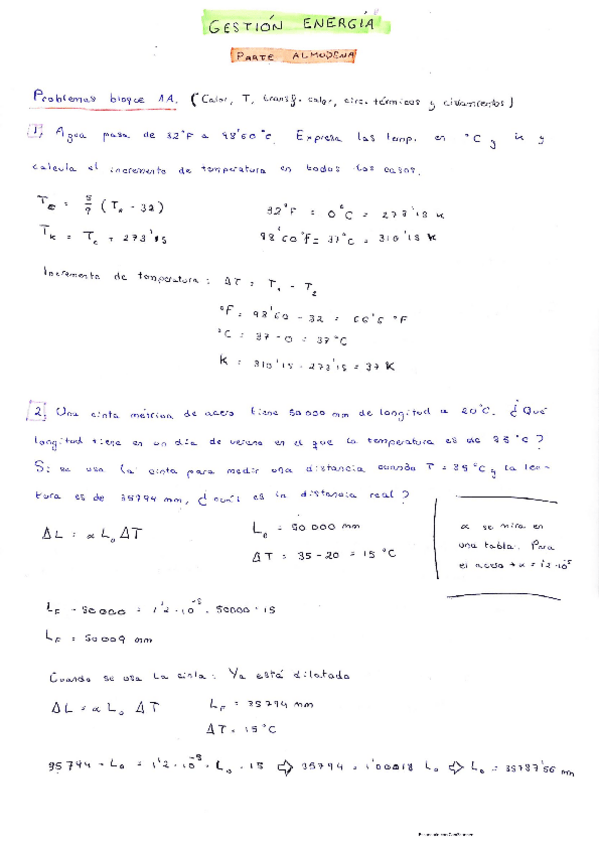 GESTIÓN ENERGÍA
PARTE ALMUDENA
Problemas bloque 1A. (Calor, T, transf. calor, circ. térmicos y aislamientos)
1, Agua pasa de 32°F a 98'60°F. Expresa las temp. en °C y K y
calcula el incremento de temperatura en todos los casos.
Tc = 5/9 (TF - 32)
32°F = 0°C = 273'15 K
TK = Tc + 273'15
98'60°F = 37°C = 310'15 K
Incremento de temperatura: ΔT = T1 - T2
°F = 98'60 - 32 = 66'6 °F
°C = 37 - 0 = 37°C
K = 310'15 - 273'15 = 37 K
2, Una cinta métrica de acero tiene 50000 mm de longitud a 20°C. ¿Qué
longitud tiene en un día de verano en el que la temperatura es de 35°C?
Si se usa la cinta para medir una distancia cuando T = 35°C y la lec-
tura es de 35794 mm, ¿cuál es la distancia real?
ΔL = α L0 ΔT
L0 = 50 000 mm
ΔT = 35 - 20 = 15 °C
α se mira en
una tabla. Para
el acero → α = 1'2·10⁻⁵
LF - 50000 = 1'2·10⁻⁵ · 50000 · 15
LF = 50009 mm
Cuando se usa la cinta: Ya está dilatada
ΔL = α L0 ΔT
LF = 35794 mm
ΔT = 15°C
35794 - L0 = 1'2·10⁻⁵ · L0 · 15 ⇒ 35794 = 1'00018 L0 ⇒ L0 = 35787'56 mm